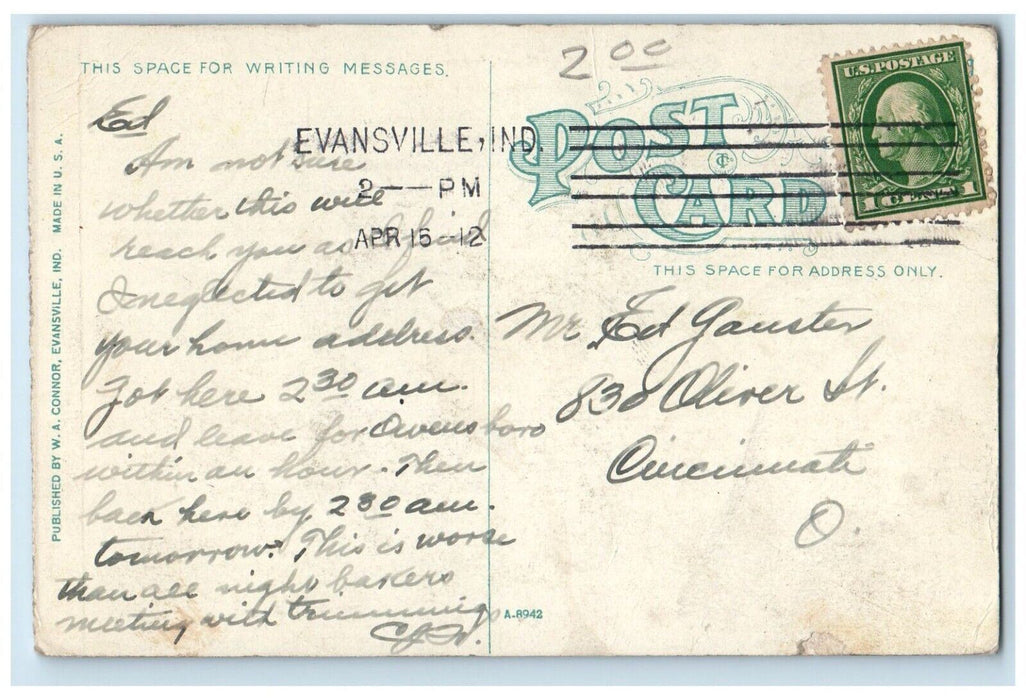 THIS SPACE FOR WRITING MESSAGES.
Ed
Am not sure
whether this will
reach you as I
I neglected to get
your home address.
Got here 2 30 am.
and leave for Owensboro
within an hour. Then
back here by 2 30 am.
tomorrow. This is worse
than all night bakers
meeting with trimmings
PUBLISHED BY W. A. CONNOR, EVANSVILLE, IND. MADE IN U. S. A.
EVANSVILLE, IND.
2 — PM
APR 15 -12
2 00
POST CARD
U.S. POSTAGE
1 CENT 1
THIS SPACE FOR ADDRESS ONLY.
Mr. Ed Gauster
830 Oliver St.
Cincinnati
O.
A-8942